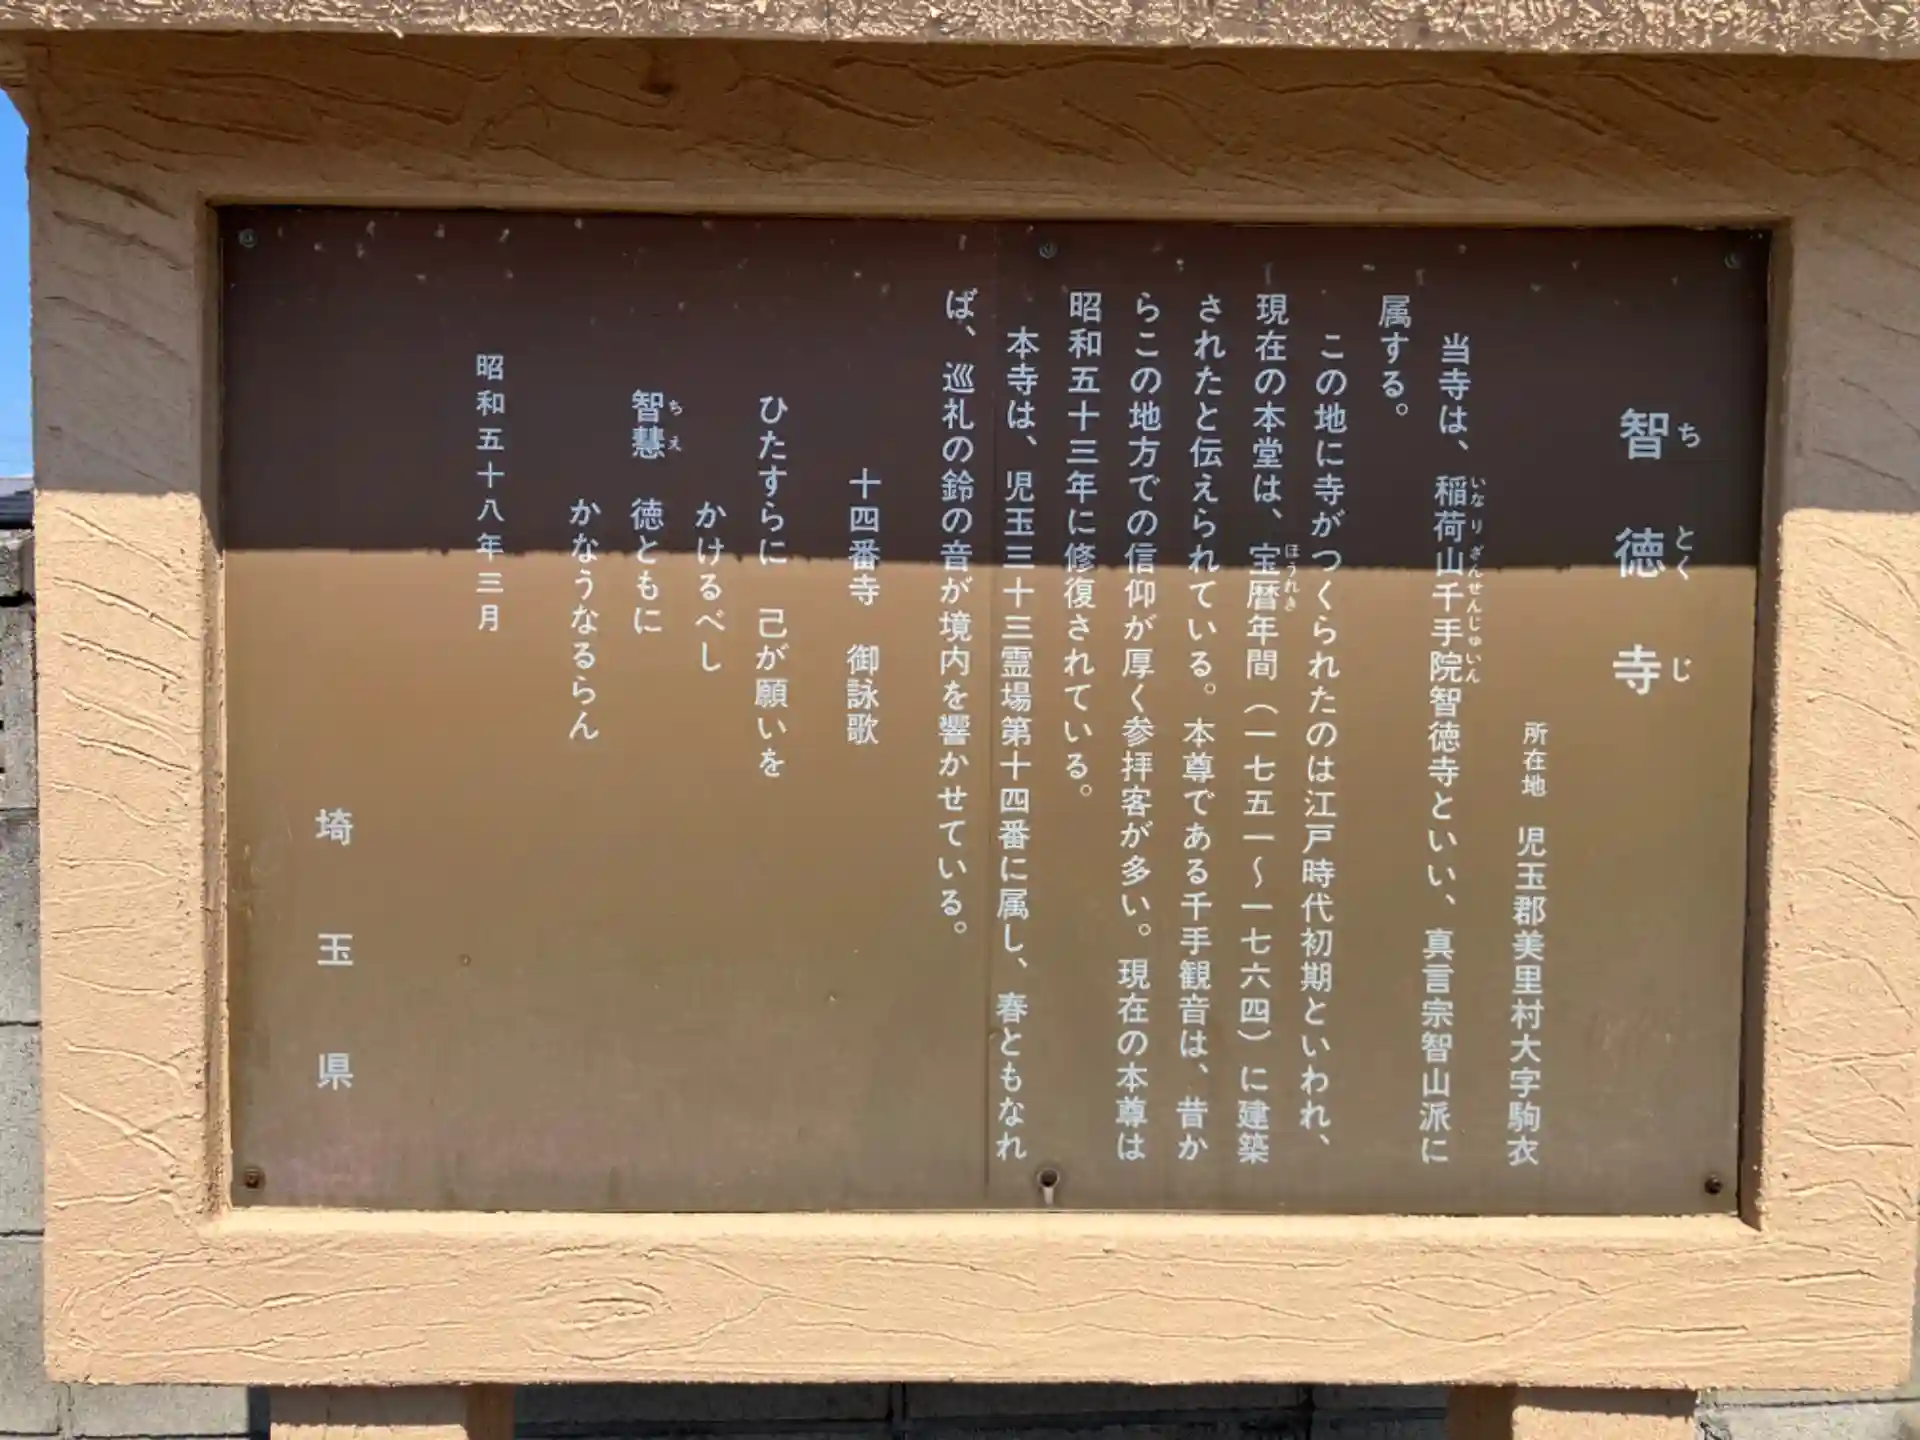 智徳寺
ちとくじ
所在地　児玉郡美里村大字駒衣
当寺は、稲荷山千手院智徳寺といい、真言宗智山派に
いなりざんせんじゅいん
属する。
この地に寺がつくられたのは江戸時代初期といわれ、
現在の本堂は、宝暦年間（一七五一〜一七六四）に建築
ほうれき
されたと伝えられている。本尊である千手観音は、昔か
らこの地方での信仰が厚く参拝客が多い。現在の本尊は
昭和五十三年に修復されている。
本寺は、児玉三十三霊場第十四番に属し、春ともなれ
ば、巡礼の鈴の音が境内を響かせている。
十四番寺　御詠歌
ひたすらに　己が願いを
かけるべし
智慧　徳ともに
ちえ
かなうなるらん
昭和五十八年三月
埼玉県